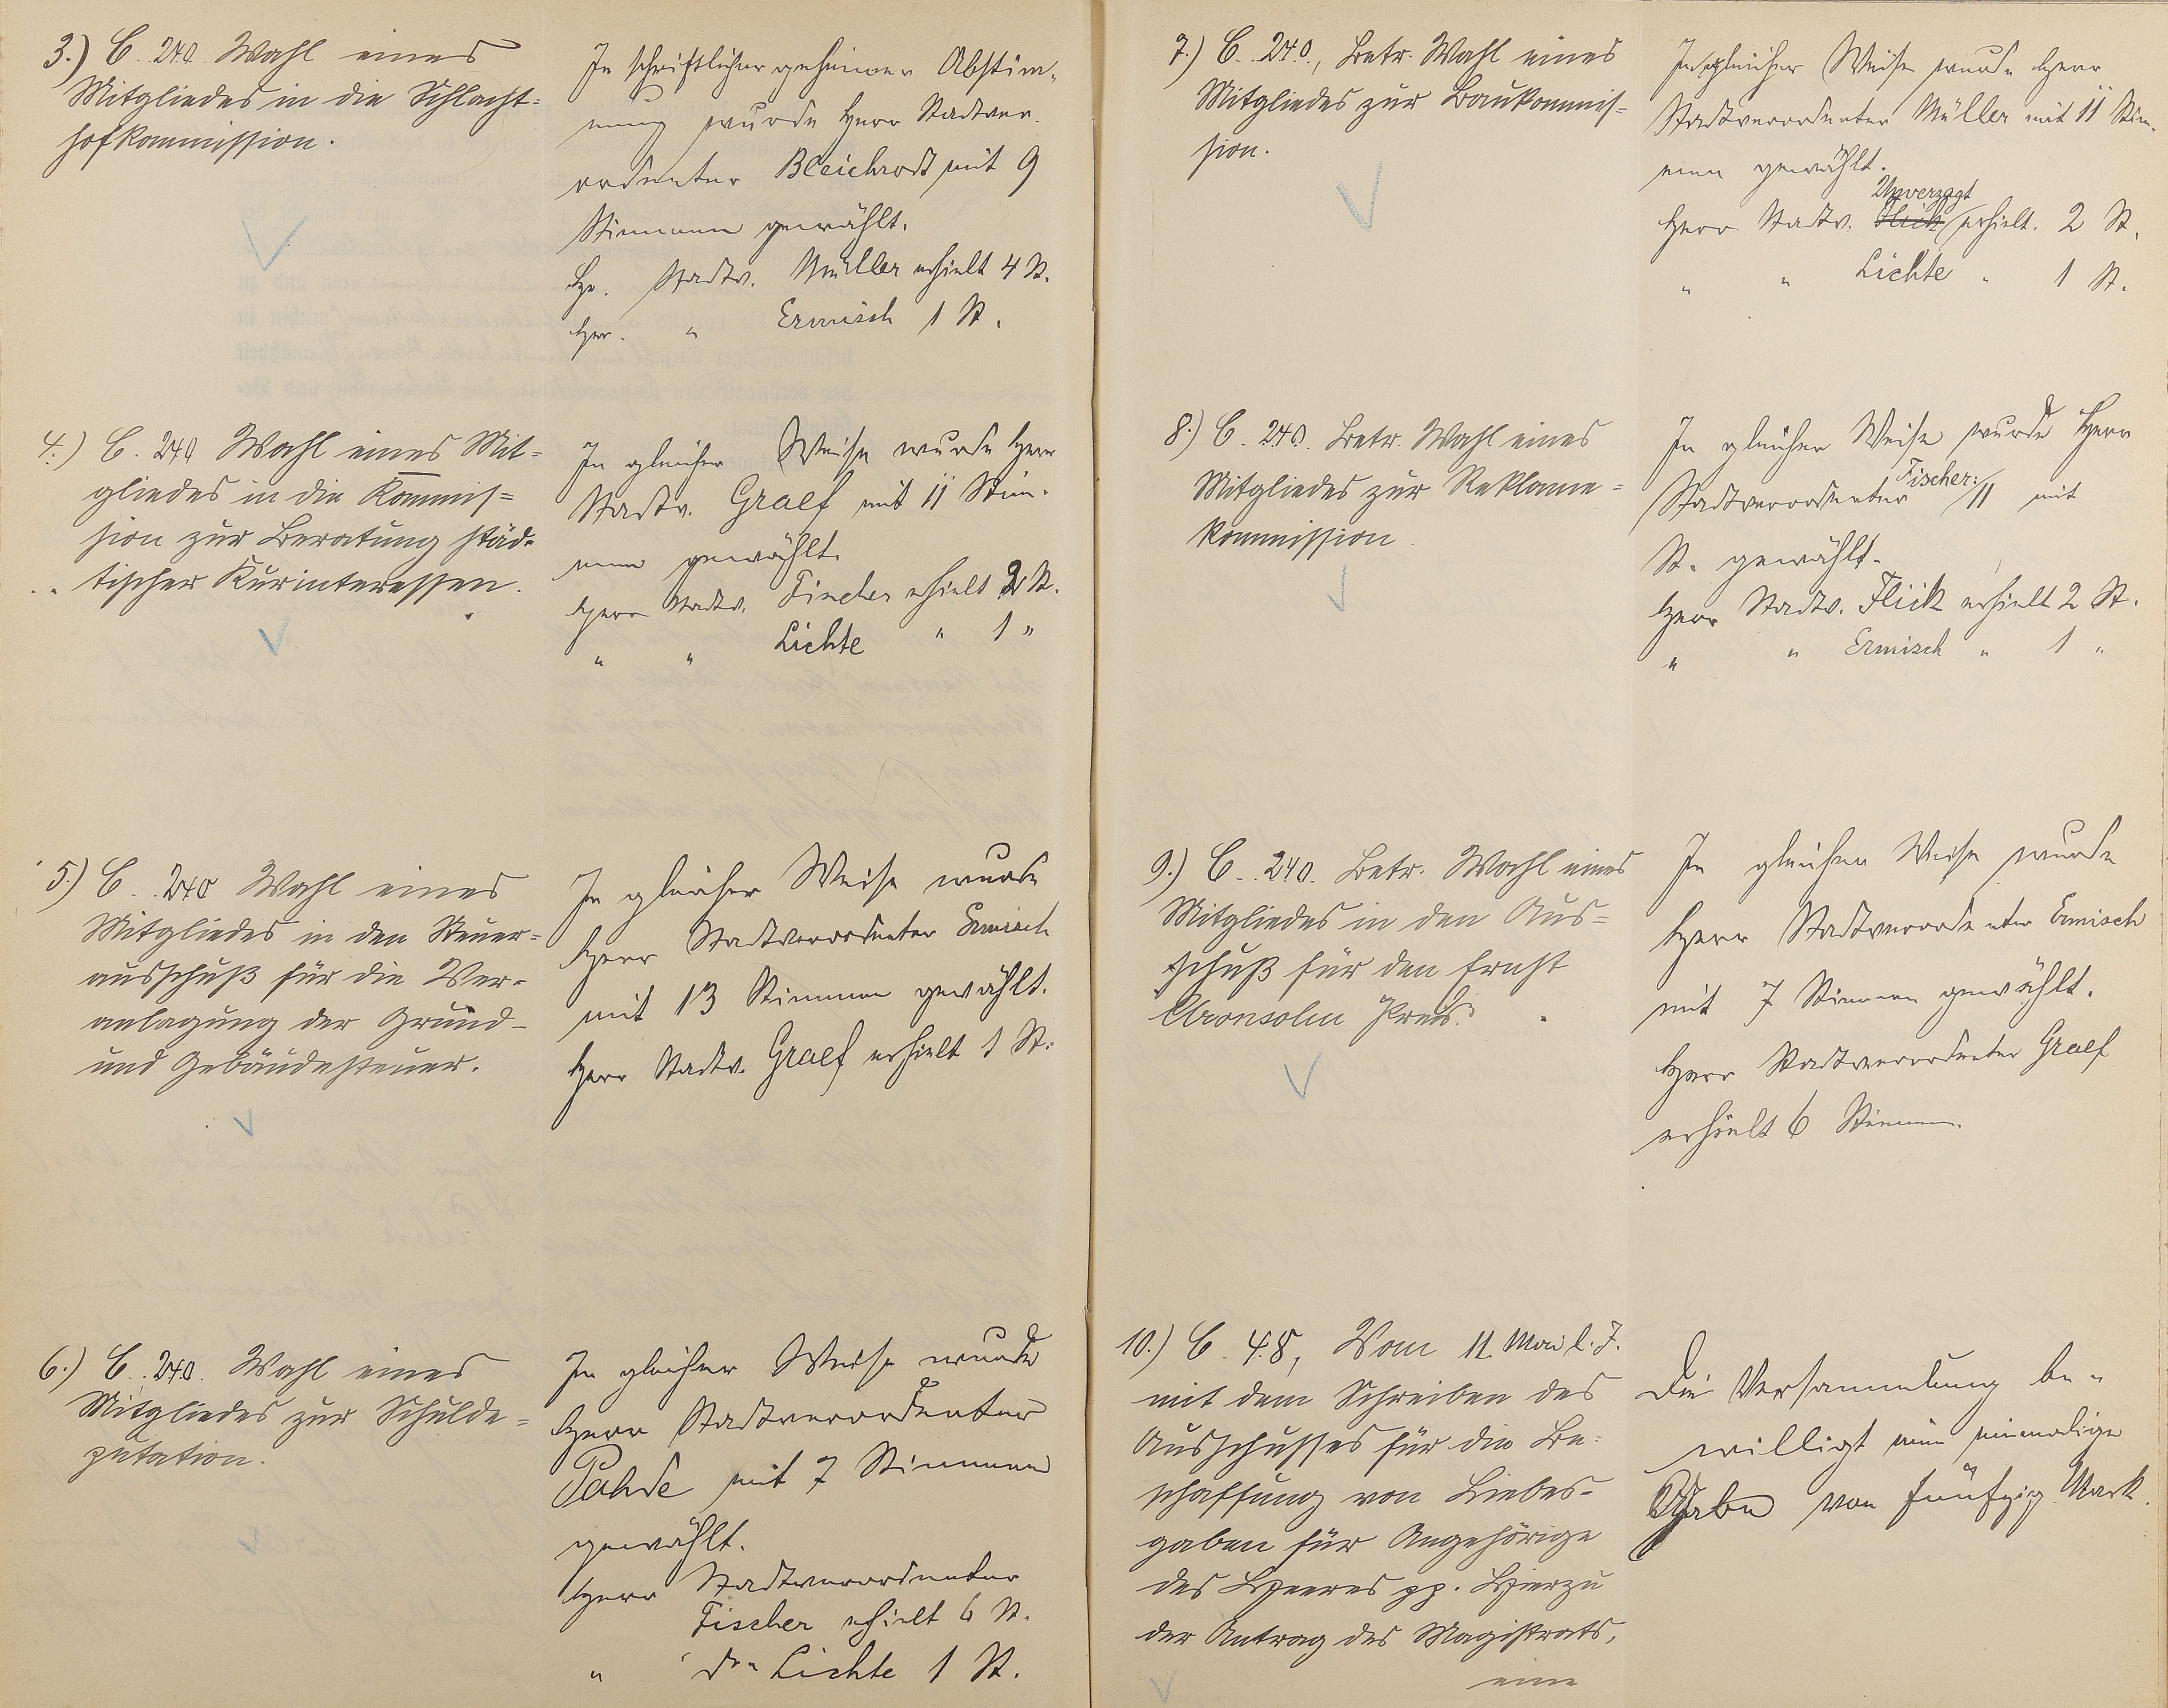 3.) C. 240 Wahl eines
Mitgliedes in die Schlacht-
hofkommission.
In schriftlicher geheimer Abstim-
mung wurde Herr Stadtver-
ordneter Bleichrodt mit 9
Stimmen gewählt.
Hr. Stadtv. Müller erhielt 4 St.
Hr. " Ermisch 1 St.
4.) C. 240 Wahl eines Mit-
gliedes in die Kommis-
sion zur Beratung städ-
tischer Kurinteressen.
In gleicher Weise wurde Herr
Stadtv. Graef mit 11 Stim-
men gewählt.
Herr Stadtv. Fischer erhielt 2 St.
" " Lichte " 1 "
5.) C. 240 Wahl eines
Mitgliedes in den Steuer-
ausschuß für die Ver-
anlagung der Grund-
und Gebäudesteuer.
In gleicher Weise wurde
Herr Stadtverordneter Ermisch
mit 13 Stimmen gewählt.
Herr Stadtv. Graef erhielt 1 St.
6.) C. 240. Wahl eines
Mitgliedes zur Schulde-
putation.
In gleicher Weise wurde
Herr Stadtverordneter
Pahde mit 7 Stimmen
gewählt.
Herr Stadtverordneter
Fischer erhielt 6 St.
" Lichte 1 St.
7.) C. 240., Betr. Wahl eines
Mitgliedes zur Baukommis-
sion.
In gleicher Weise wurde Herr
Stadtverordneter Müller mit 11 Stim-
men gewählt.
Unverzagt
Herr Stadtv. Flick erhielt. 2 St.
" " Lichte " 1 St.
8.) C. 240. Betr. Wahl eines
Mitgliedes zur Reklame-
kommission
In gleicher Weise wurde Herr
Fischer
Stadtverordneter 11 mit
St. gewählt.
Herr Stadtv. Flick erhielt 2 St.
" " Ermisch " 1 "
9.) C. 240. Betr. Wahl eines
Mitgliedes in den Aus-
schuß für den Ernst
Aronsohn Preis.
In gleicher Weise wurde
Herr Stadtverordneter Ermisch
mit 7 Stimmen gewählt.
Herr Stadtverordneter Graef
erhielt 6 Stimmen.
10.) C. 48, Vom 11. Mai l. J.
mit dem Schreiben des
Ausschusses für die Be-
schaffung von Liebes-
gaben für Angehörige
des Heeres pp. Hierzu
der Antrag des Magistrats,
eine
Die Versammlung be-
willigt eine einmalige
Gabe von fünfzig Mark.